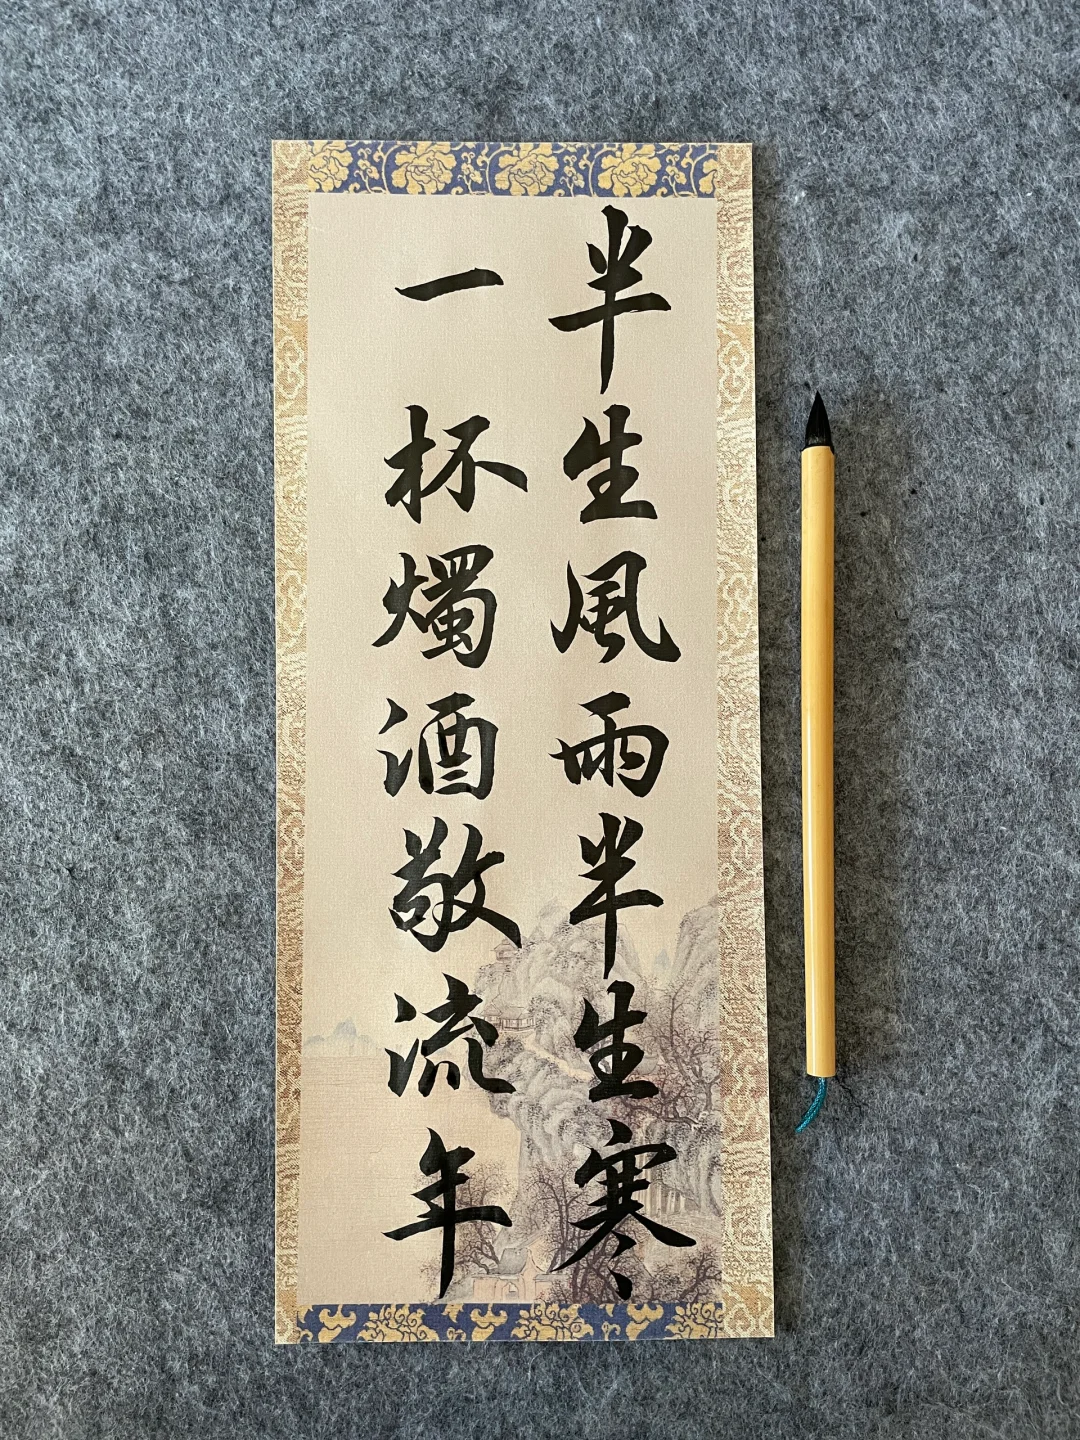 半生風雨半生寒
一杯燭酒敬流年